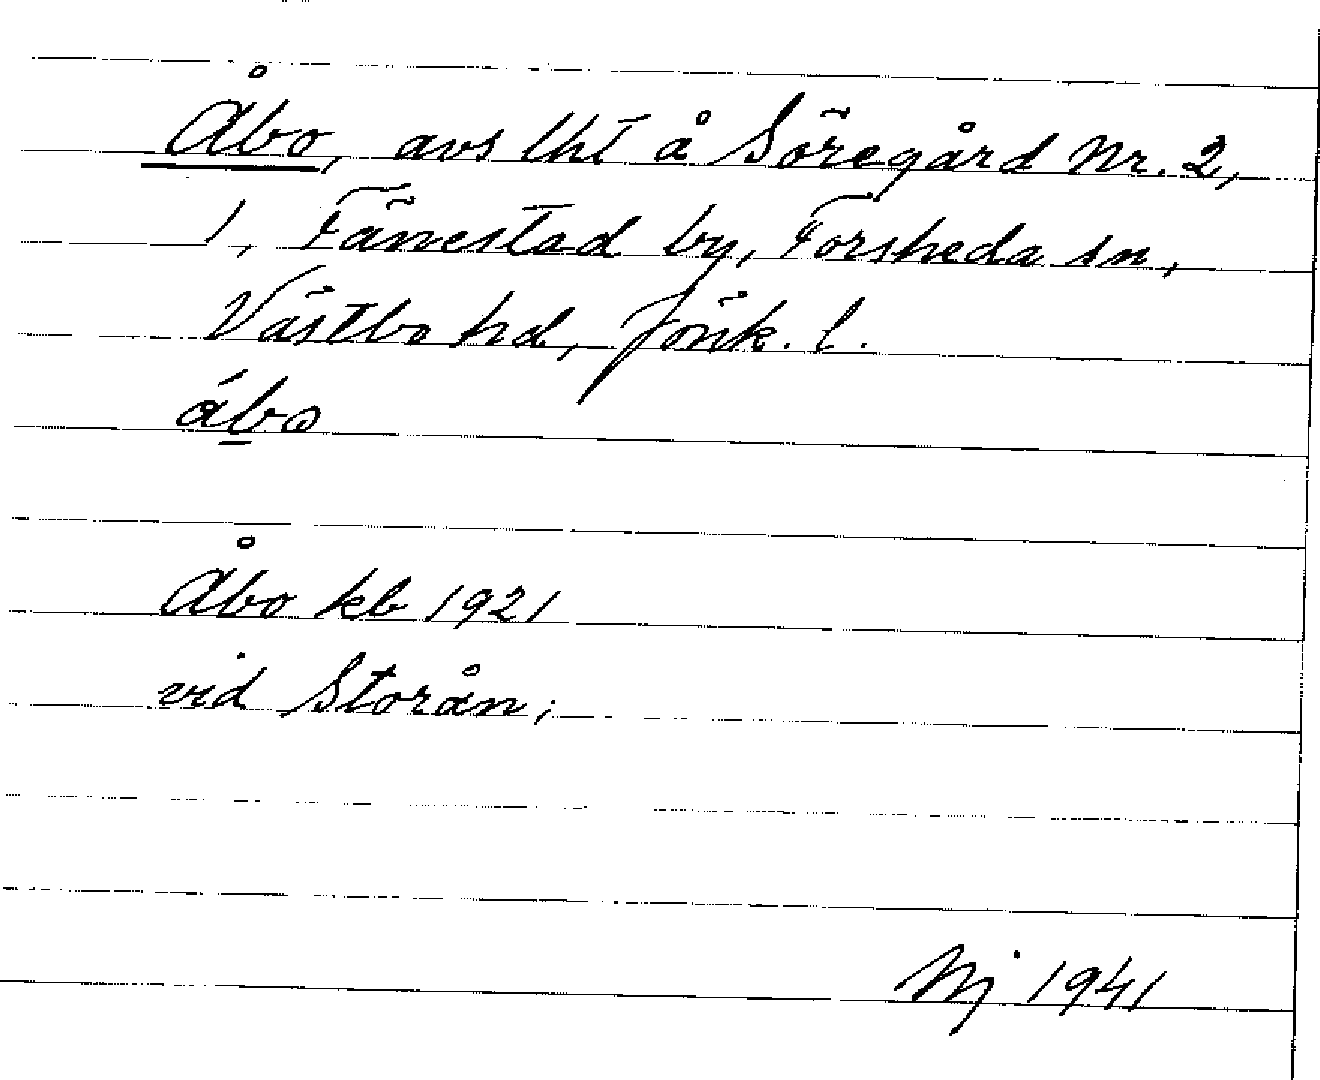 Åbo, avs lht å Söregård Nr. 2,
1, Fänestad by, Forsheda sn,
Västbo hd, Jönk. l.
ábo
Åbo kb 1921
vid Storån;
Nj 1941